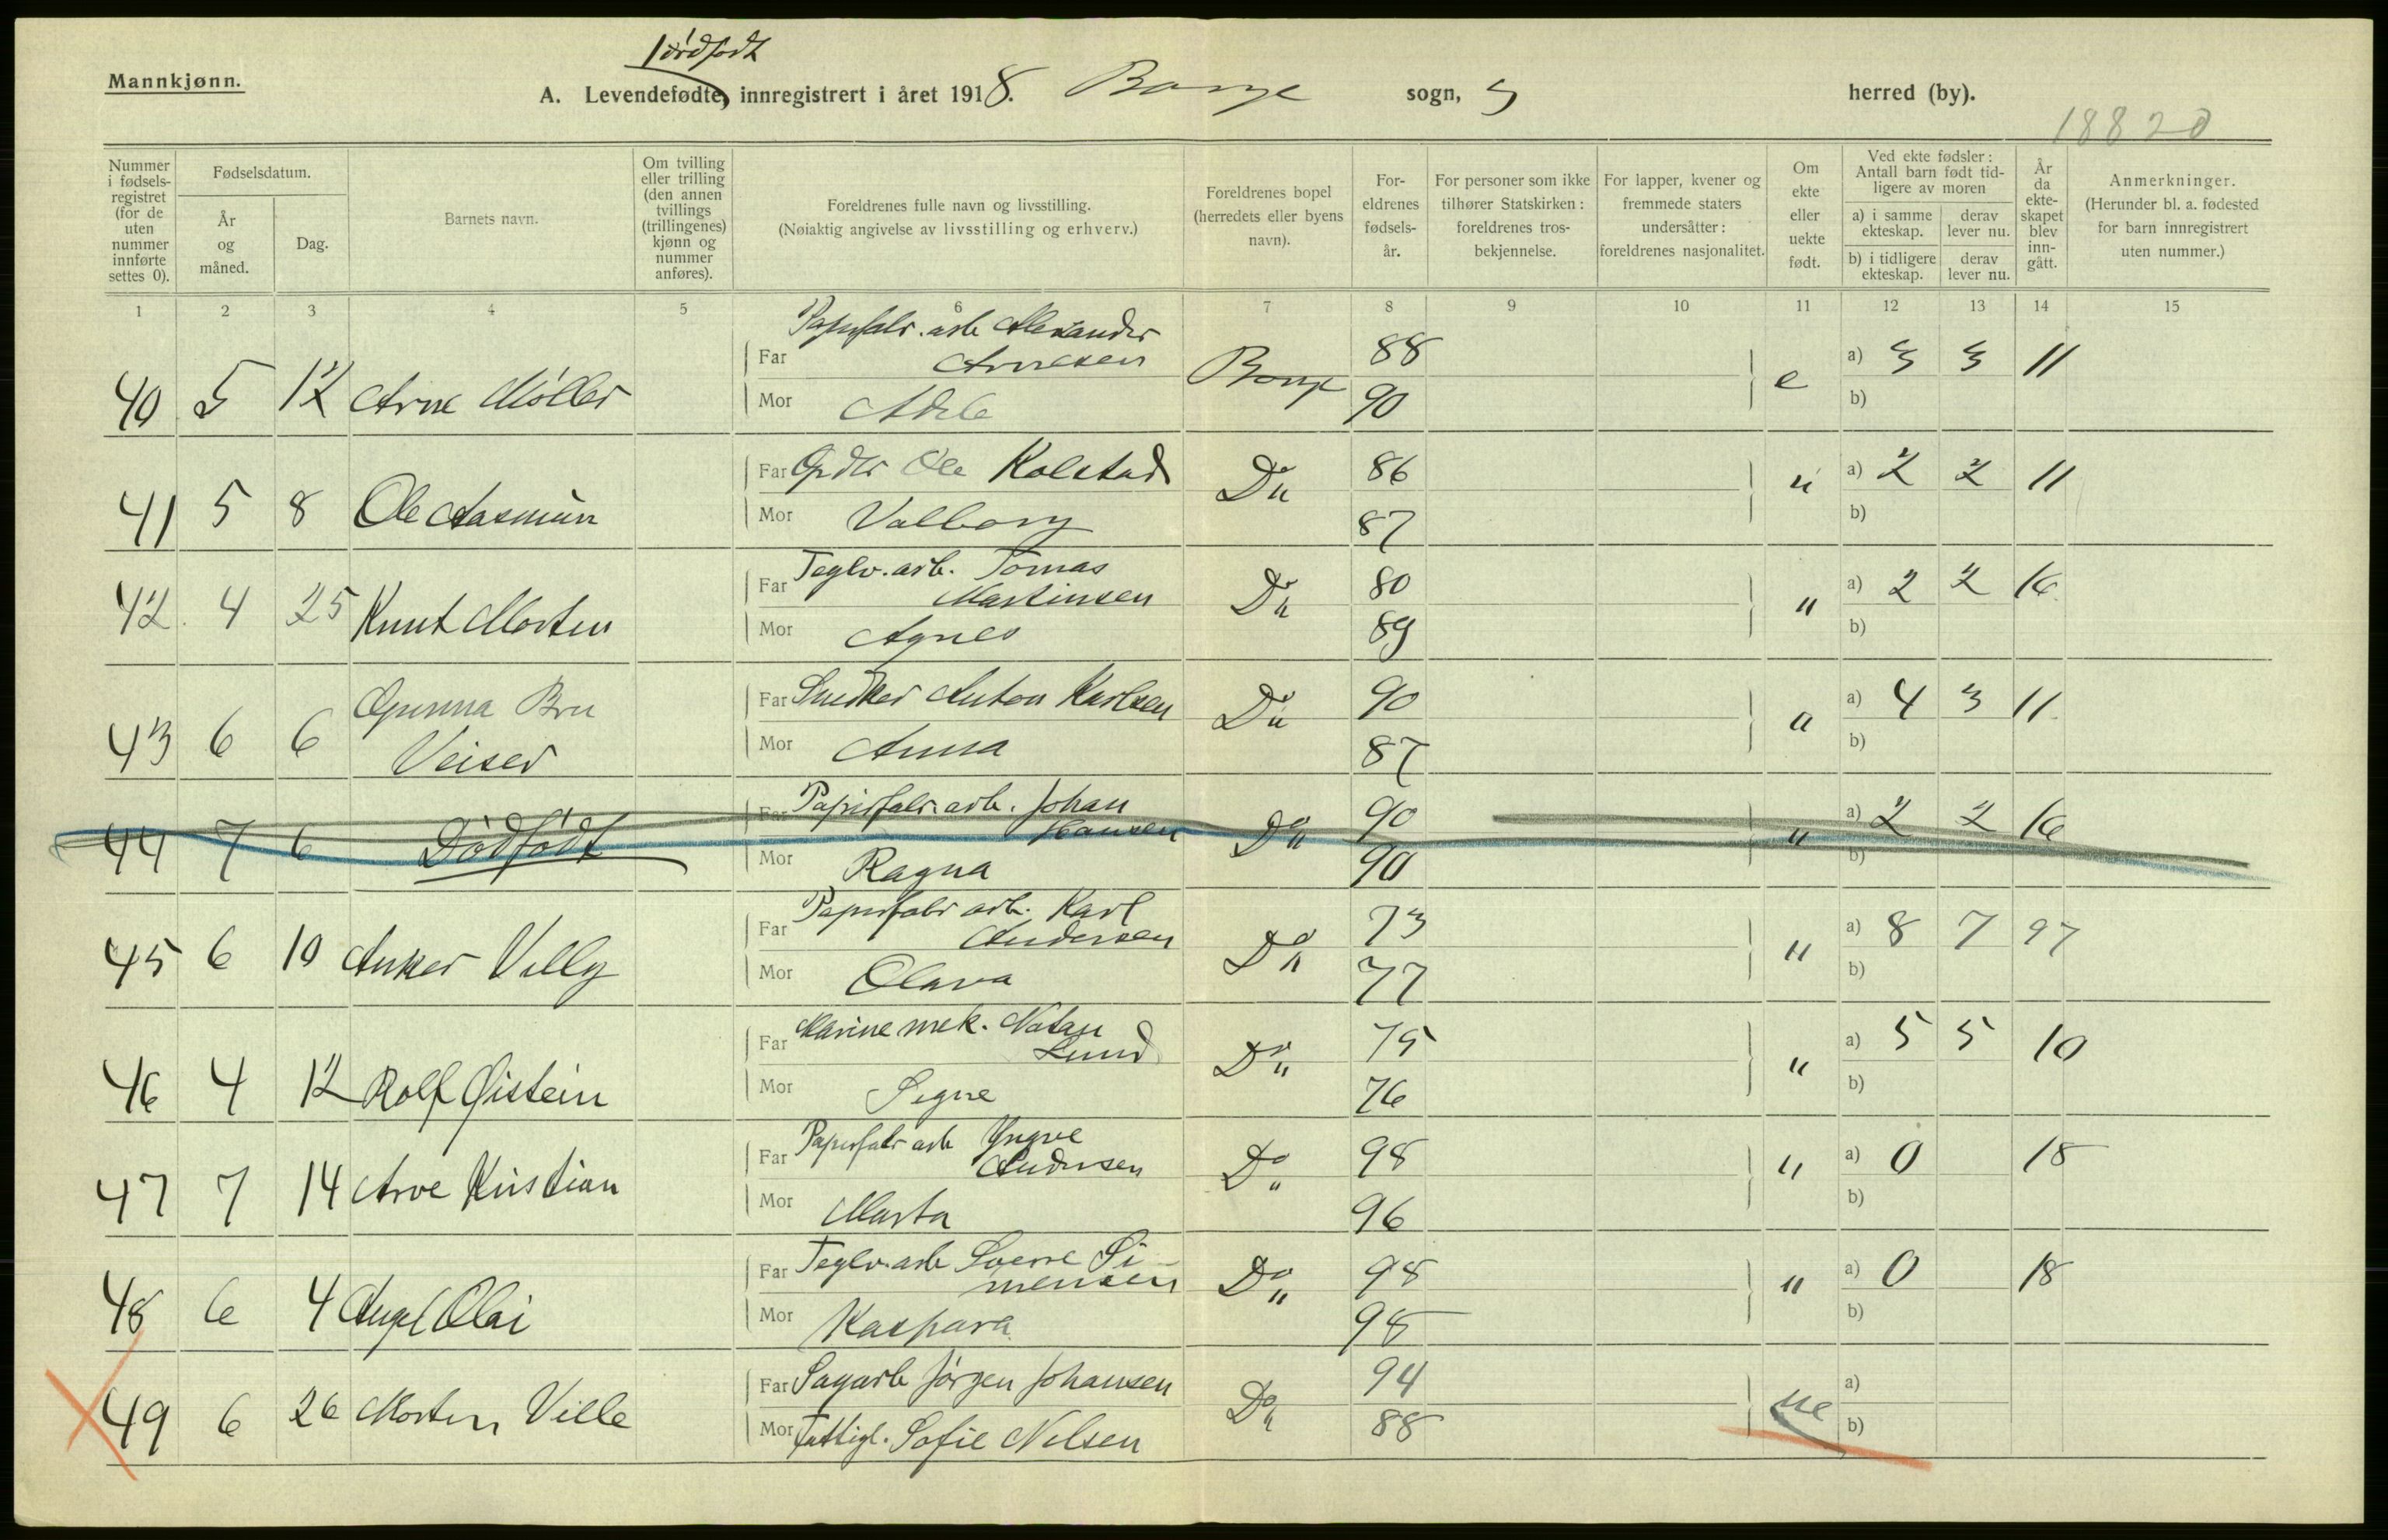 1 dødfødt
Mannkjønn.
A. Levendefødte, innregistrert i året 1918. Borge sogn, herred (by).
18820
Nummer i fødsels-registret (for de uten nummer innførte settes 0).
Fødselsdatum.
År og måned.
Dag.
Barnets navn.
Om tvilling eller trilling (den annen tvillings (trillingenes) kjønn og nummer anføres).
Foreldrenes fulle navn og livsstilling.
(Nøiaktig angivelse av livsstilling og erhverv.)
Foreldrenes bopel (herredets eller byens navn).
For-eldrenes fødsels-år.
For personer som ikke tilhører Statskirken: foreldrenes tros-bekjennelse.
For lapper, kvener og fremmede staters undersåtter: foreldrenes nasjonalitet.
Om ekte eller uekte født.
Ved ekte fødsler: Antall barn født tid-ligere av moren
a) i samme ekteskap.
derav lever nu.
b) i tidligere ekteskap.
derav lever nu.
År da ekte-skapet blev inn-gått.
Anmerkninger.
(Herunder bl. a. fødested for barn innregistrert uten nummer.)
1 2 3 4 5 6 7 8 9 10 11 12 13 14 15
Far Papirfabr. arb. Alexander
Arnesen 88 a) 3 3 11
40 5 12 Arne Møller Borge e
Mor Adele 90 b)
Far Ole Kolstad Do 86 a) 2 2 11
41 5 8 Ole Aasmun "
Mor Valborg 87 b)
Far Teglv. arb. Tomas
Martinsen Do 80 a) 2 2 16
42 4 25 Knut Morten "
Mor Agnes 89 b)
Far Snedker Anton Karlsen Do 90 a) 4 3 11
43 6 6 Gunna Bru
Veiser "
Mor Anna 87 b)
Far Papirfabr. arb. Johan
Hansen Do 90 a) 2 2 16
44 7 6 Dødfødt "
Mor Ragna 90 b)
Far Papirfabr arb. Karl
Andersen Do 73 a) 8 7 97
45 6 10 Anker Villy "
Mor Olava 77 b)
Far Marine mek. Natan
Lund Do 75 a) 5 5 10
46 4 12 Rolf Øistein "
Mor Signe 76 b)
Far Papirfabr arb Yngve
Andersen Do 98 a) 0 18
47 7 14 Arve Kristian "
Mor Marta 96 b)
Far Teglv. arb Sverre Si-
mensen Do 98 a) 0 18
48 6 4 Olai "
Mor Kaspara 98 b)
Far Sagarb Jørgen Johansen Do 94 a)
49 6 26 Morten Ville ue
Mor Fattigl. Sofie Nilsen 88 b)